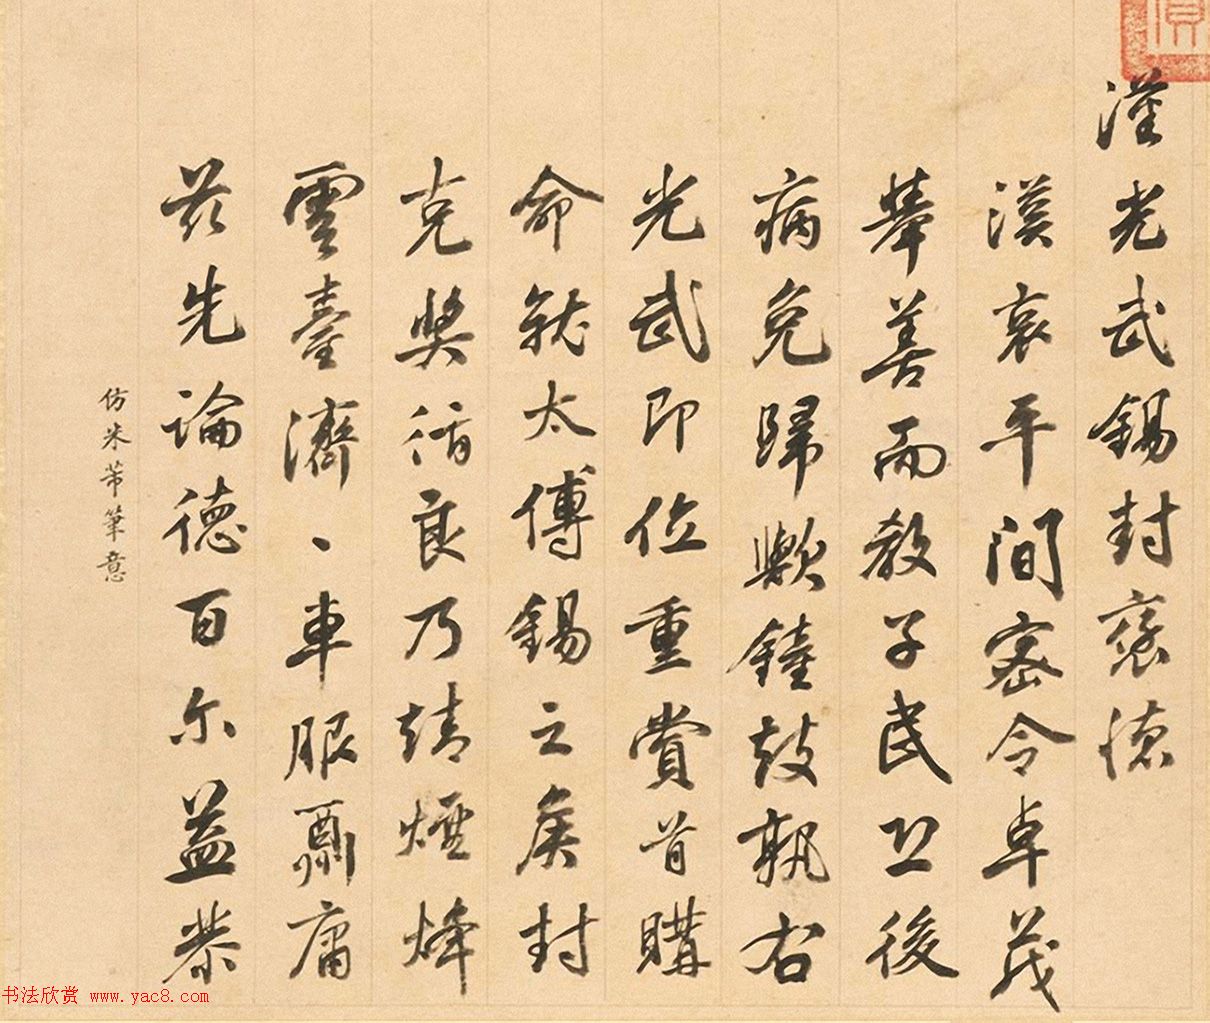 漢光武錫封褒德
漢哀平間密令卓茂
舉善而教子民後
病免歸歟鐘鼓孰右
光武即位重賞首購
命就太傅錫之矦封
克奬循良乃靖煙烽
雲臺濟、車服酬庸
茲先論德百尔益恭
仿米芾筆意
书法欣赏 www.yac8.com